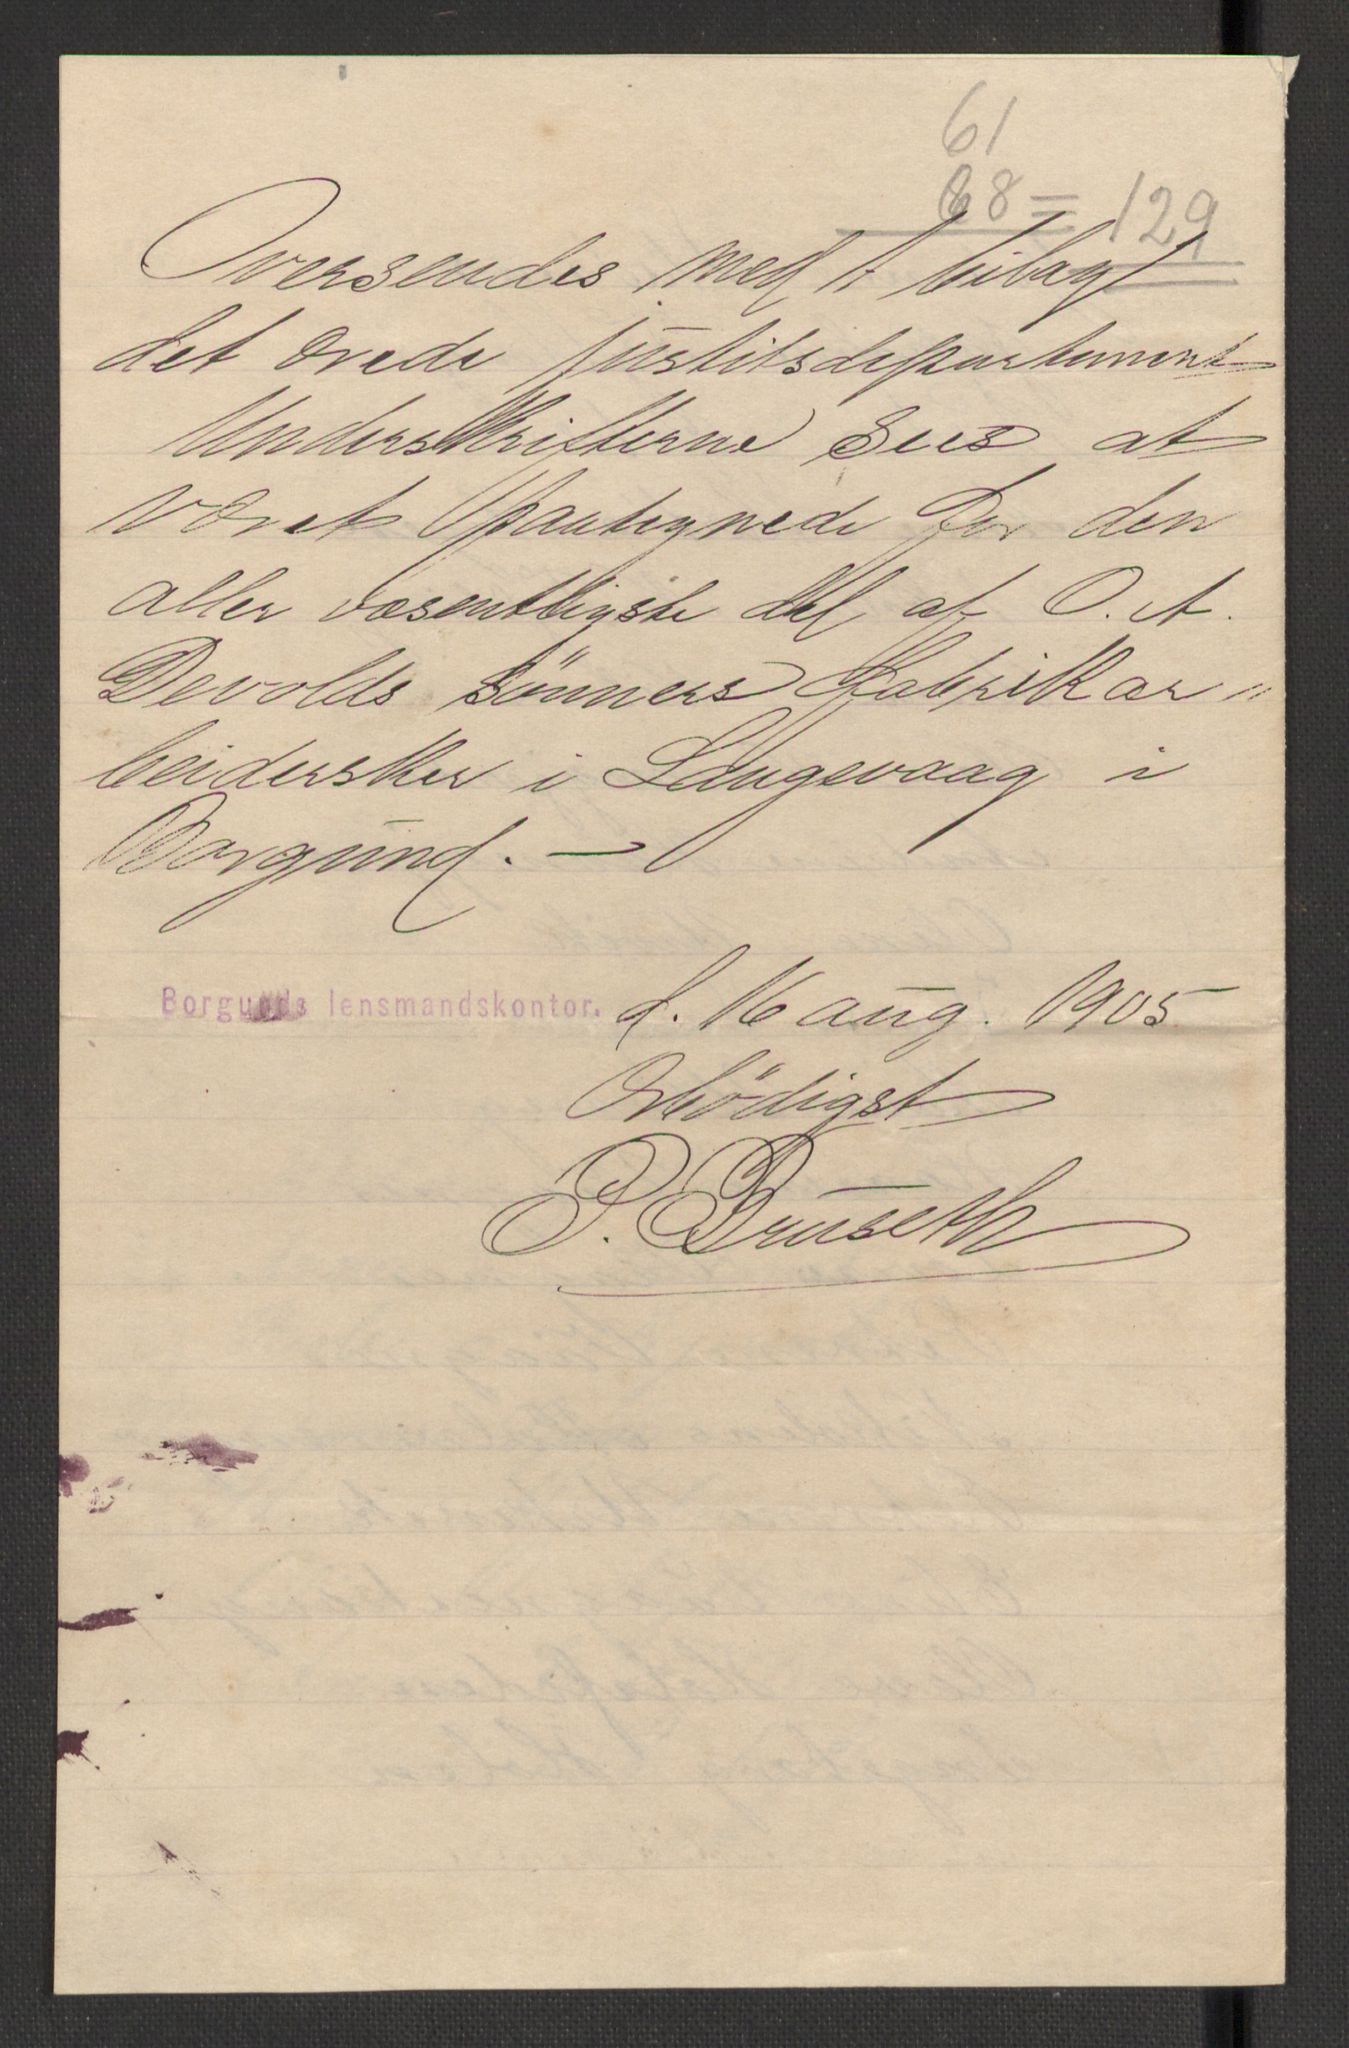 61
68 = 129
Oversendes med 1 bilag
det ærede Justitsdepartement
Underskrifterne sees at
været paategnede for den
aller væsentligste del af O. A.
Devolds sønners Fabrikar„
beidersker i Langevaag i
Borgund. —
Borgunds lensmandskontor. d. 16 aug. 1905
Ærbødigst
P. Bruseth